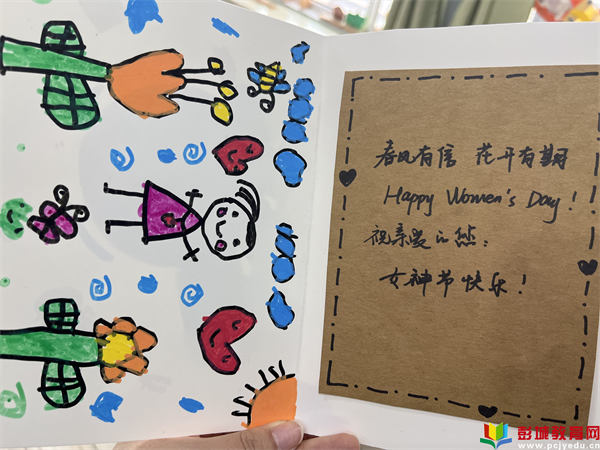 春风有信 花开有期
Happy Women's Day!
祝亲爱的您:
女神节快乐!
彭城教育网
www.pcjyedu.cn